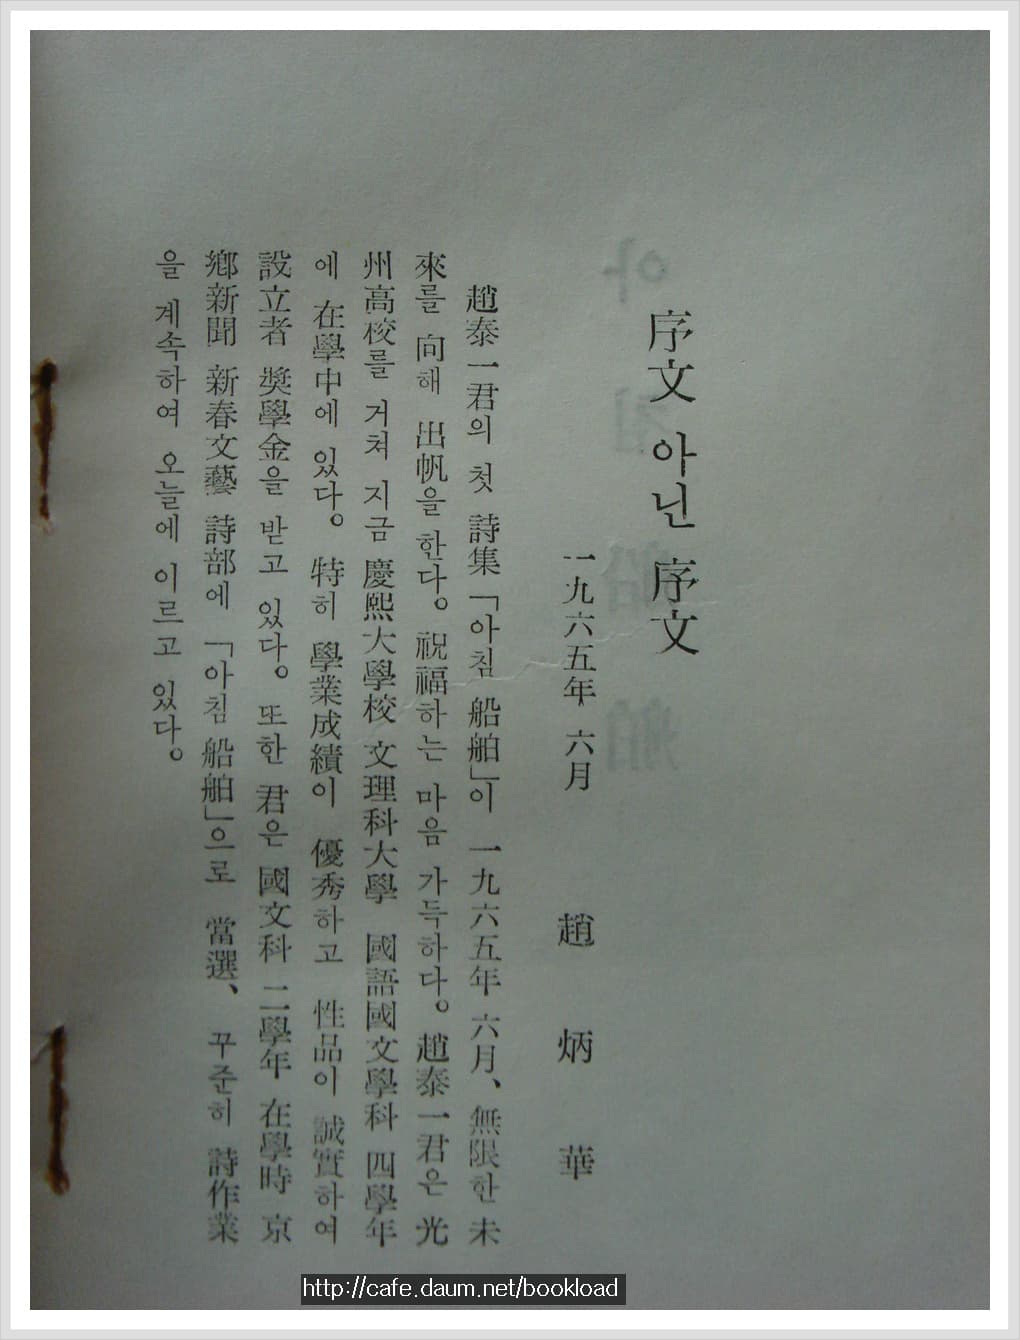 序文 아닌 序文
一九六五年 六月
趙 炳 華
趙泰一君의 첫 詩集「아침 船舶」이 一九六五年 六月、無限한 未
來를 向해 出帆을 한다。祝福하는 마음 가득하다。趙泰一君은 光
州高校를 거쳐 지금 慶熙大學校 文理科大學 國語國文學科 四學年
에 在學中에 있다。特히 學業成績이 優秀하고 性品이 誠實하여
設立者 奬學金을 받고 있다。또한 君은 國文科 二學年 在學時 京
鄕新聞 新春文藝 詩部에 「아침 船舶」으로 當選、꾸준히 詩作業
을 계속하여 오늘에 이르고 있다。
아침 船舶
http://cafe.daum.net/bookload